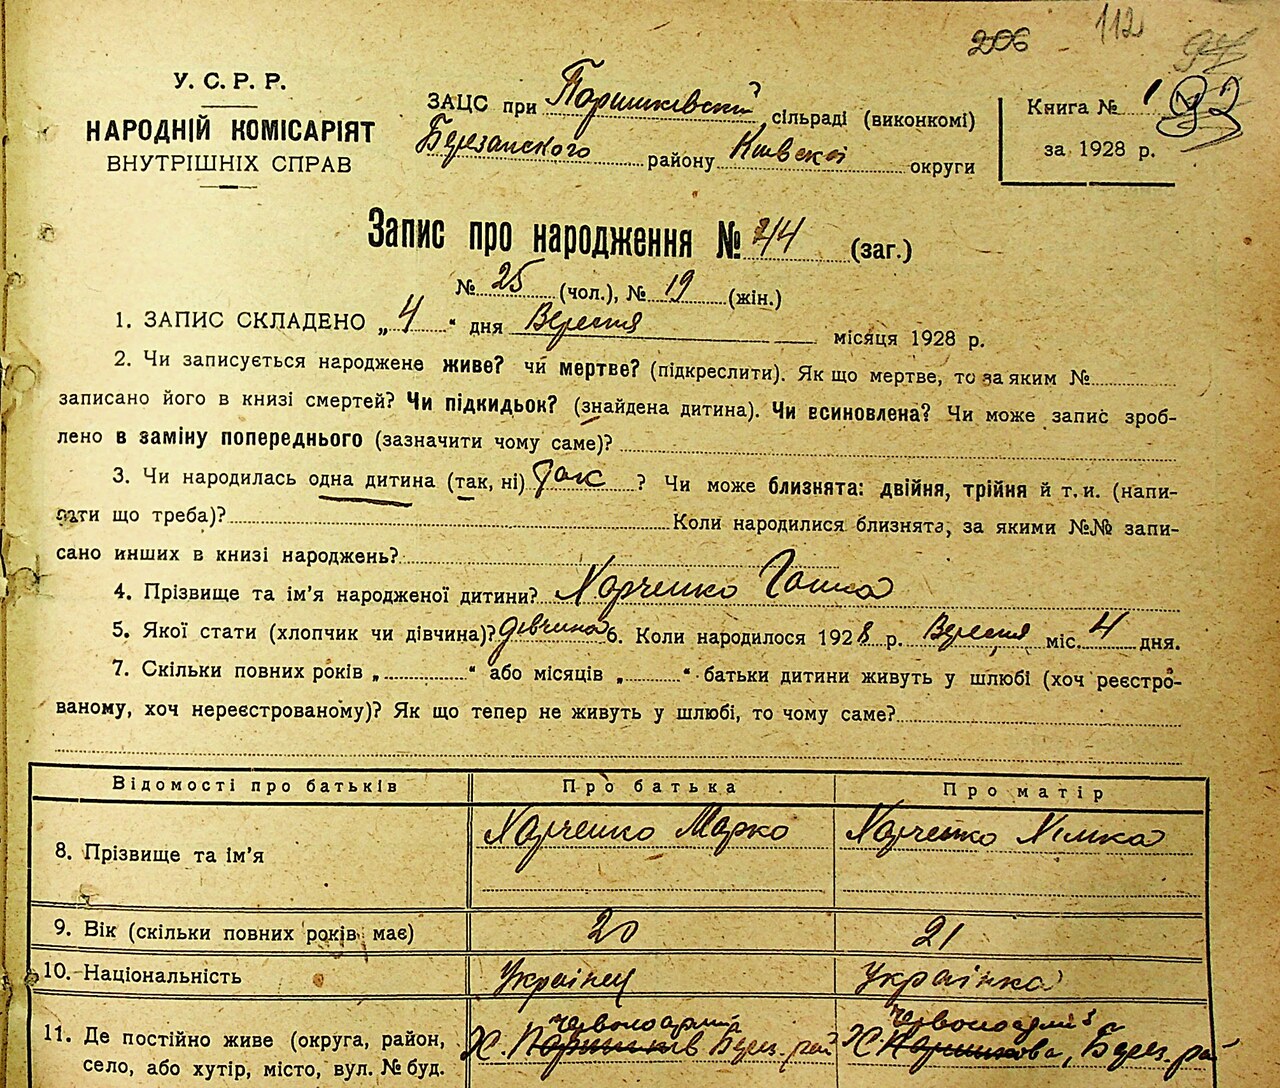 206 112 97
У. С. Р. Р.
НАРОДНІЙ КОМІСАРІЯТ
ВНУТРІШНІХ СПРАВ
ЗАЦС при Паришківській сільраді (виконкомі)
Березанського району Київської округи
Книга № 1
за 1928 р.
Запис про народження № 44 (заг.)
№ 25 (чол.), № 19 (жін.)
1. ЗАПИС СКЛАДЕНО „ 4 “ дня Вересня місяця 1928 р.
2. Чи записується народжене живе? чи мертве? (підкреслити). Як що мертве, то за яким №
записано його в книзі смертей? Чи підкидьок? (знайдена дитина). Чи всиновлена? Чи може запис зроб-
лено в заміну попереднього (зазначити чому саме)?
3. Чи народилась одна дитина (так, ні) Так ? Чи може близнята: двійня, трійня й т. и. (напи-
сати що треба)? Коли народилися близнята, за якими №№ запи-
сано инших в книзі народжень?
4. Прізвище та ім'я народженої дитини? Харченко Ганна
5. Якої стати (хлопчик чи дівчина)? дівчина 6. Коли народилося 1928 р. Вересня міс. 4 дня.
7. Скільки повних років „ “ або місяців „ “ батьки дитини живуть у шлюбі (хоч реєстро-
ваному, хоч нереєстрованому)? Як що тепер не живуть у шлюбі, то чому саме?
Відомості про батьків Про батька Про матір
8. Прізвище та ім'я Харченко Марко Харченко Хімка
9. Вік (скільки повних років має) 20 21
10. Національність Українец Українка
11. Де постійно живе (округа, район,
село, або хутір, місто, вул. № буд.
Х. Червоноармій Берез. рай
Х. Червоноармій Берез. рай